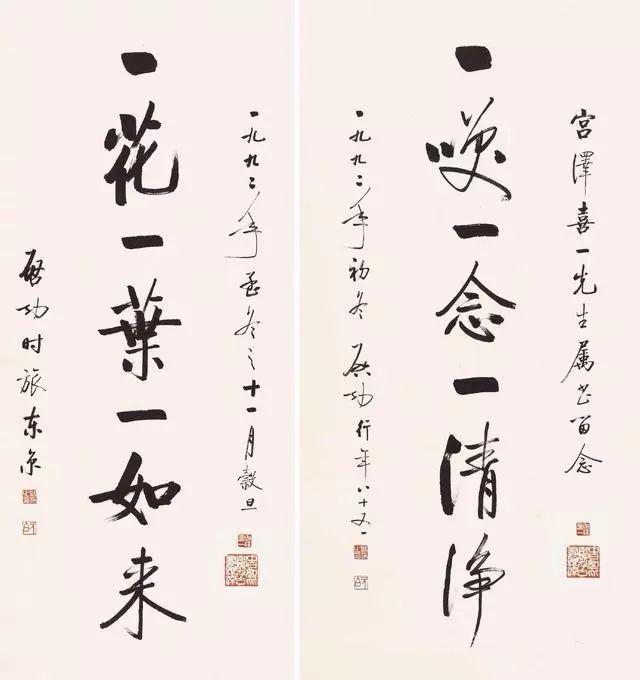 宮澤喜一先生属书留念
一咲一念一清淨
一九九二年初冬 启功行年八十又一
一九九二年孟冬之十一月穀旦
一花一葉一如来
启功时旅东京